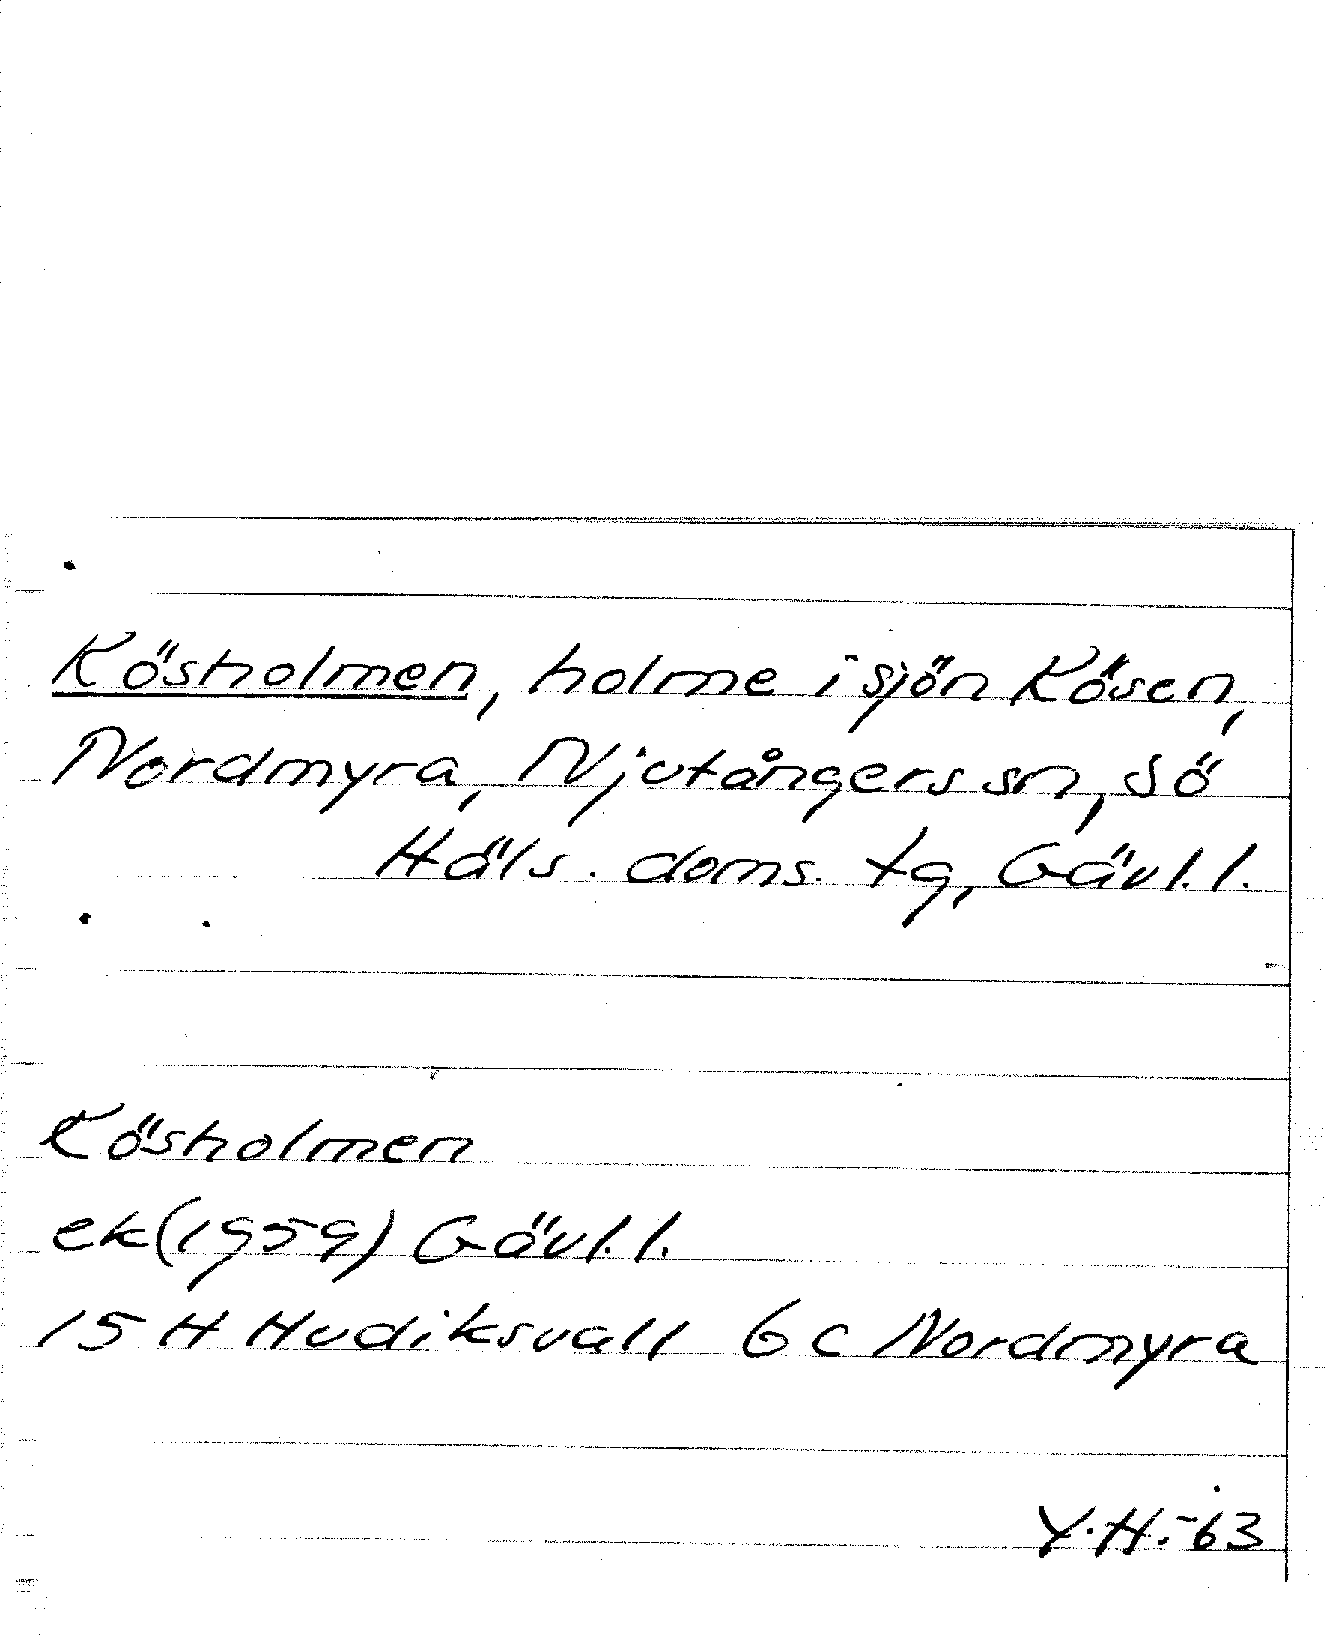 Kösholmen, holme i sjön Kösen,
Nordmyra, Njutångers sn, Sö
Häls. doms. tg, Gävl. l.
Kösholmen
ek (1959) Gävl. l.
15 H Hudiksvall 6 c Nordmyra
Y.H.-63